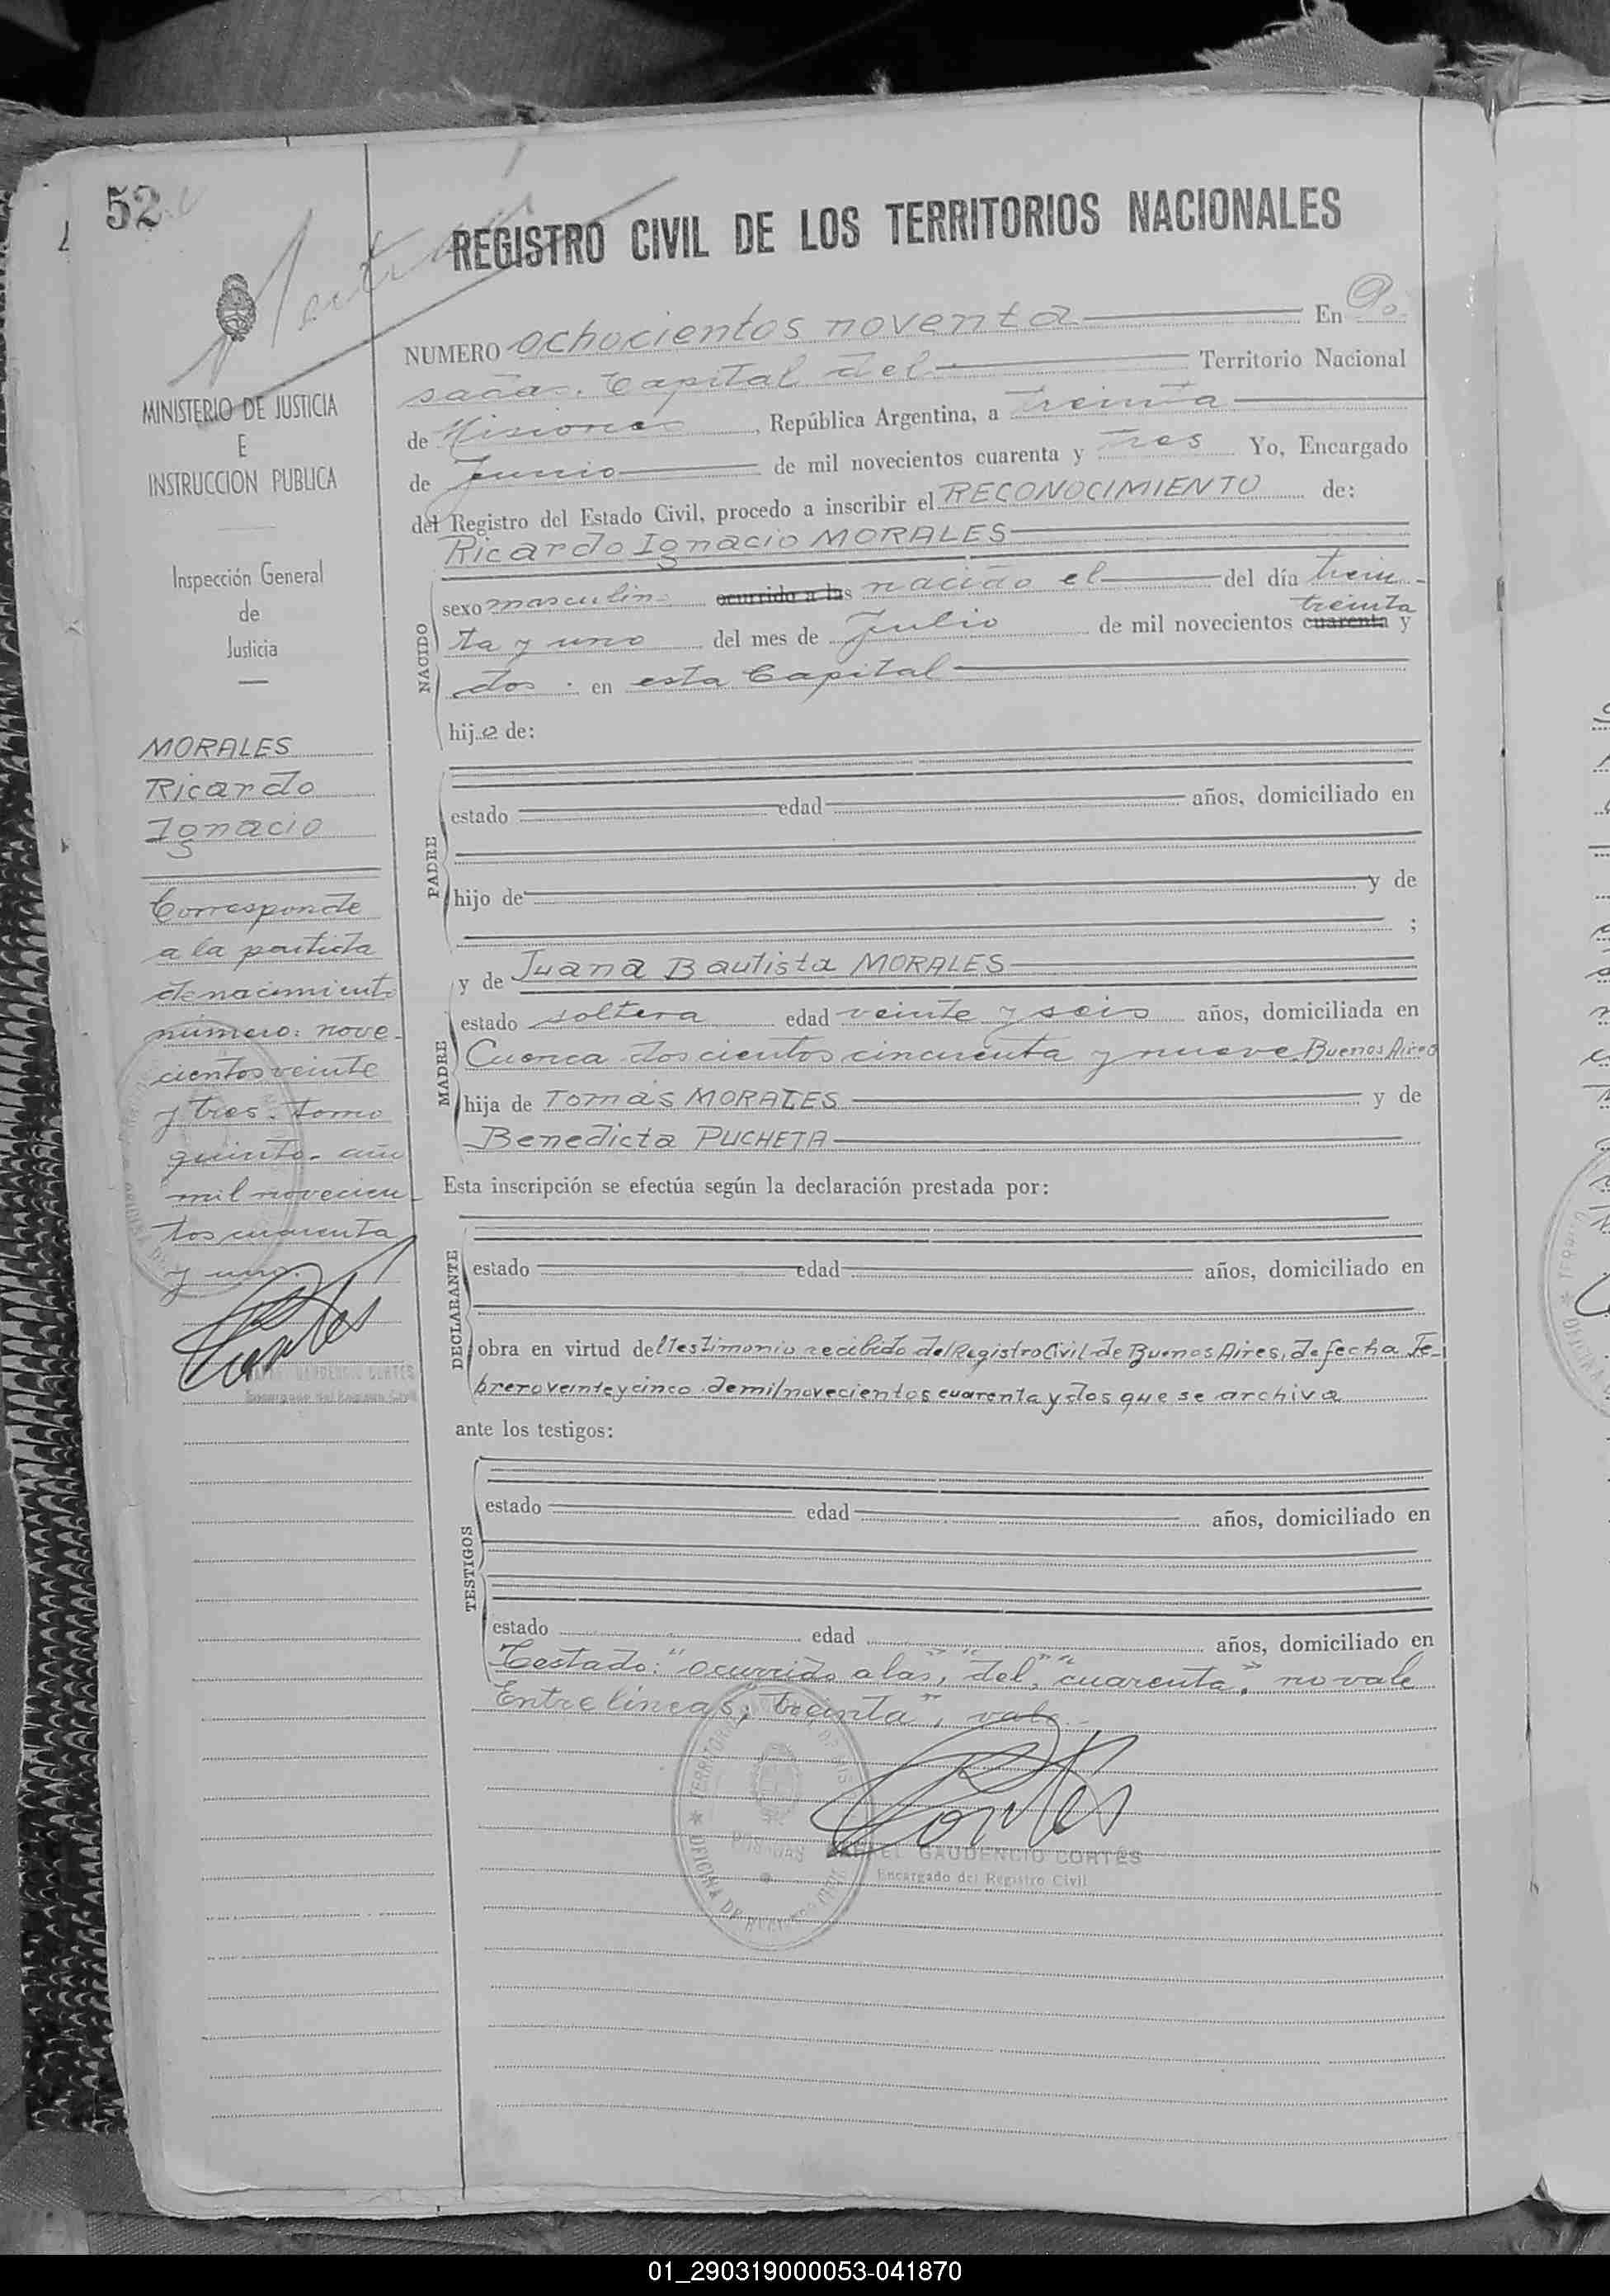 52
REGISTRO CIVIL DE LOS TERRITORIOS NACIONALES
NUMERO ochocientos noventa En Po
sadas. Capital del Territorio Nacional
de Misiones, República Argentina, a treinta
de Junio de mil novecientos cuarenta y tres Yo, Encargado
del Registro del Estado Civil, procedo a inscribir el RECONOCIMIENTO de:
Ricardo Ignacio MORALES
NACIDO
sexo masculino ocurrido a las nacido el del día trein-
treinta
ta y uno del mes de Julio de mil novecientos cuarenta y
dos. en esta Capital
hijo de:
PADRE
estado edad años, domiciliado en
hijo de y de
;
MADRE
y de Juana Bautista MORALES
estado soltera edad veinte y seis años, domiciliada en
Cuenca doscientos cincuenta y nueve. Buenos Aires
hija de Tomás MORALES y de
Benedicta PUCHETA
Esta inscripción se efectúa según la declaración prestada por:
DECLARANTE
estado edad años, domiciliado en
obra en virtud del testimonio recibido del Registro Civil de Buenos Aires, de fecha Fe-
brero veinte y cinco de mil novecientos cuarenta y dos que se archiva
ante los testigos:
TESTIGOS
estado edad años, domiciliado en
estado edad años, domiciliado en
Testado: "ocurrido a las", "del", "cuarenta", no vale
Entre lineas; "treinta", vale.-
Cortes
RAFAEL GAUDENCIO CORTÉS
Encargado del Registro Civil
MINISTERIO DE JUSTICIA
E
INSTRUCCION PUBLICA
Inspección General
de
Justicia
MORALES
Ricardo
Ignacio
Corresponde
a la partida
de nacimiento
número: nove-
cientos veinte
y tres. tomo
quinto. año
mil novecien-
tos cuarenta
y uno.
Cortes
GAUDENCIO CORTÉS
Encargado del Registro Civil
01_290319000053-041870